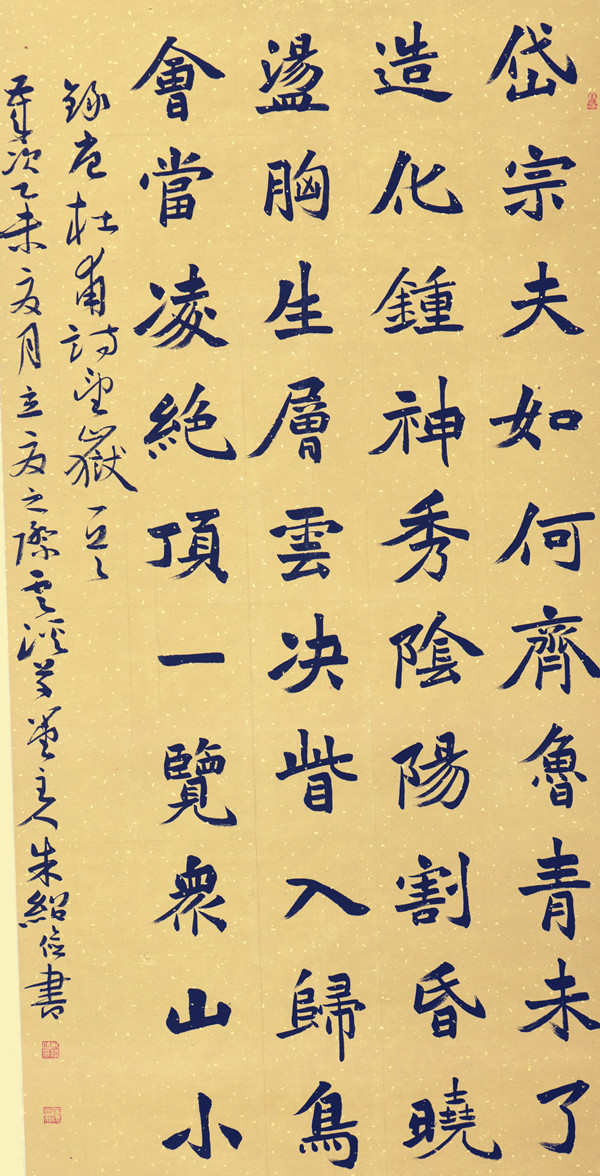 岱宗夫如何齊魯青未了
造化鍾神秀陰陽割昏曉
盪胸生層雲决眥入歸鳥
會當凌絶頂一覽衆山小
錄唐杜甫詩望嶽一首
歲次乙未夏月立夏之際雲溪草堂主人朱紹俭書